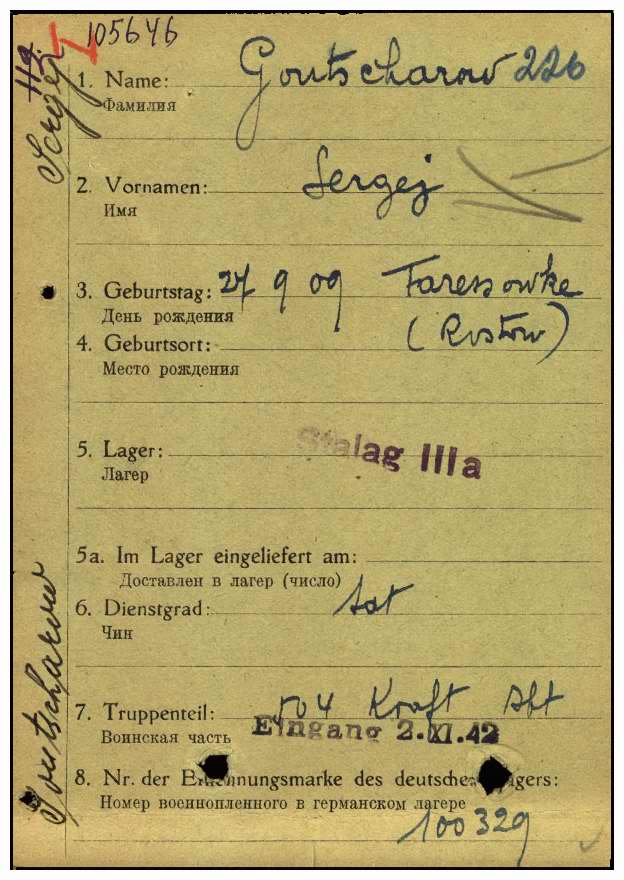 105646
119.
Sergej
1. Name: Goutscharow 226
Фамилия
2. Vornamen: Sergej
Имя
3. Geburtstag: 27 9 09
День рождения
4. Geburtsort: (Rostow)
Место рождения
5. Lager: Stalag IIIa
Лагер
5a. Im Lager eingeliefert am:
Доставлен в лагер (число)
6. Dienstgrad:
Чин
7. Truppenteil: 504 Kraft Abt
Воинская часть Eingang 2.XI.42
8. Nr. der Erkennungsmarke des deutschen Lagers:
Номер военнопленного в германском лагере
100329
Goutscharow